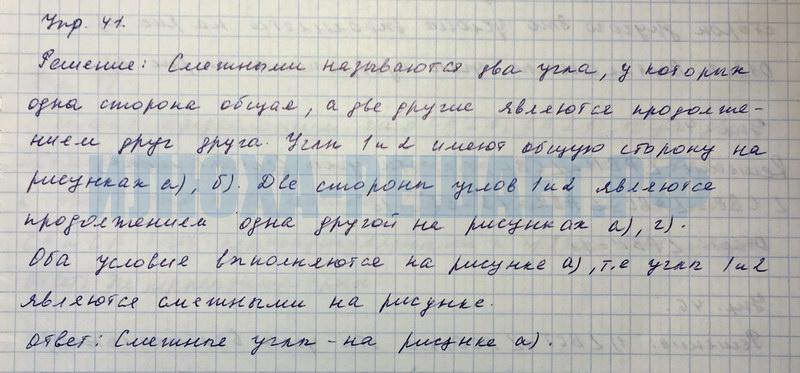 Упр. 41.
Решение: Смежными называются два угла, у которых
одна сторона общая, а две другие являются продолже-
нием друг друга. Углы 1 и 2 имеют общую сторону на
рисунках а), б). Две стороны углов 1 и 2 являются
продолжением одна другой на рисунках а), г).
Оба условия выполняются на рисунке а), т.е углы 1 и 2
являются смежными на рисунке.
Ответ: Смежные углы - на рисунке а).